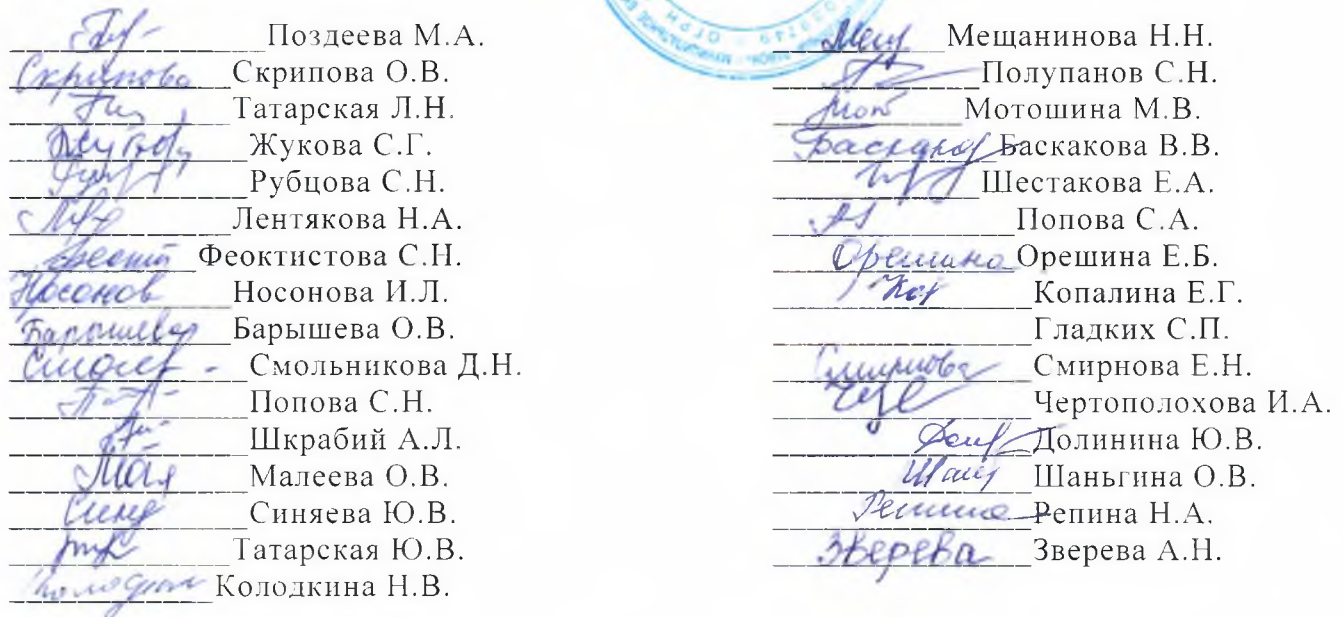 Поздеева М.А.
Скрипова Скрипова О.В.
Татарская Л.Н.
Жукова С.Г.
Рубцова С.Н.
Лентякова Н.А.
Феокт Феоктистова С.Н.
Носонов Носонова И.Л.
Барышева Барышева О.В.
Смольникова Д.Н.
Попова С.Н.
Шкрабий А.Л.
Мал Малеева О.В.
Синя Синяева Ю.В.
Татарская Ю.В.
Колодкина Н.В.
Мещ Мещанинова Н.Н.
Полупанов С.Н.
Мот Мотошина М.В.
Баскакова В.В.
Шестакова Е.А.
Попова С.А.
Орешина Орешина Е.Б.
Коп Копалина Е.Г.
Гладких С.П.
Смирнова Смирнова Е.Н.
Чертополохова И.А.
Долинина Ю.В.
Шаньгина О.В.
Репина Репина Н.А.
Зверева Зверева А.Н.